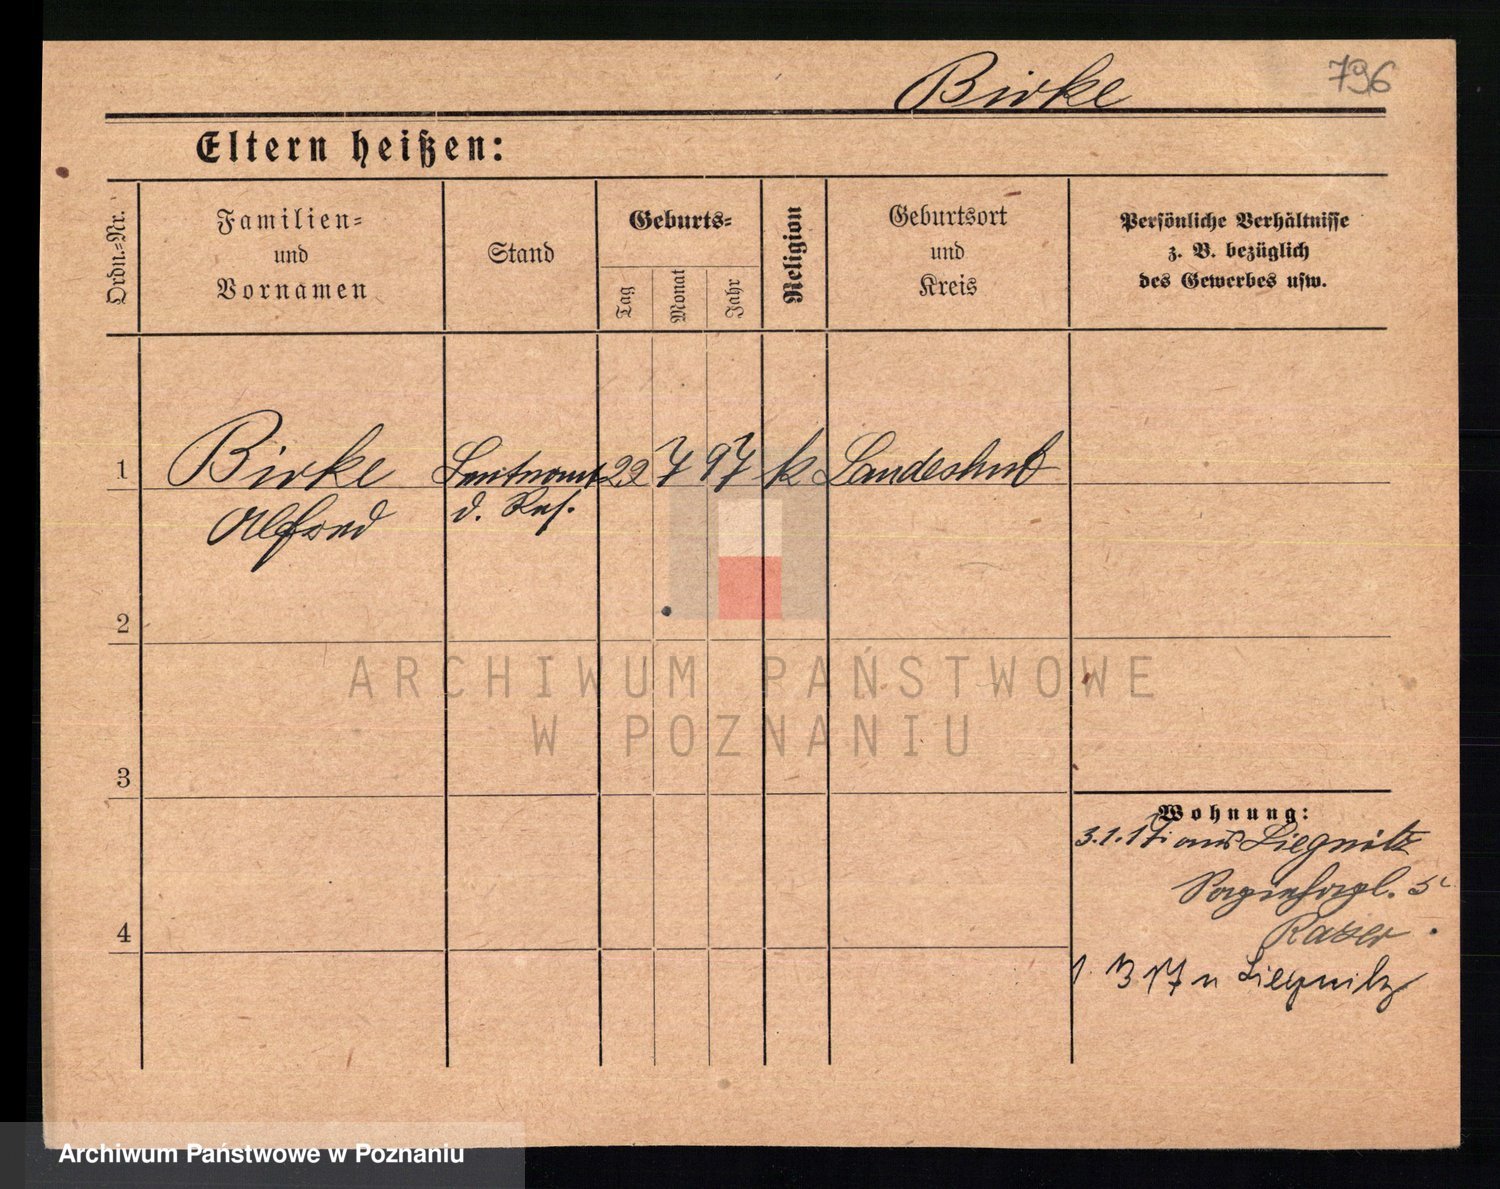 Birke
796
Eltern heißen:
Ordn.=Nr.
Familien=
und
Vornamen
Stand
Geburts=
Tag
Monat
Jahr
Religion
Geburtsort
und
Kreis
Persönliche Verhältnisse
z. B. bezüglich
des Gewerbes usw.
1
Birke
Alfred
Leutnant
d. Res.
22
7
97
k
Landeshut
2
3
4
Wohnung:
3.1.17 aus Liegnitz
5
1 3 17 n Liegnitz
ARCHIWUM PAŃSTWOWE
W POZNANIU
Archiwum Państwowe w Poznaniu